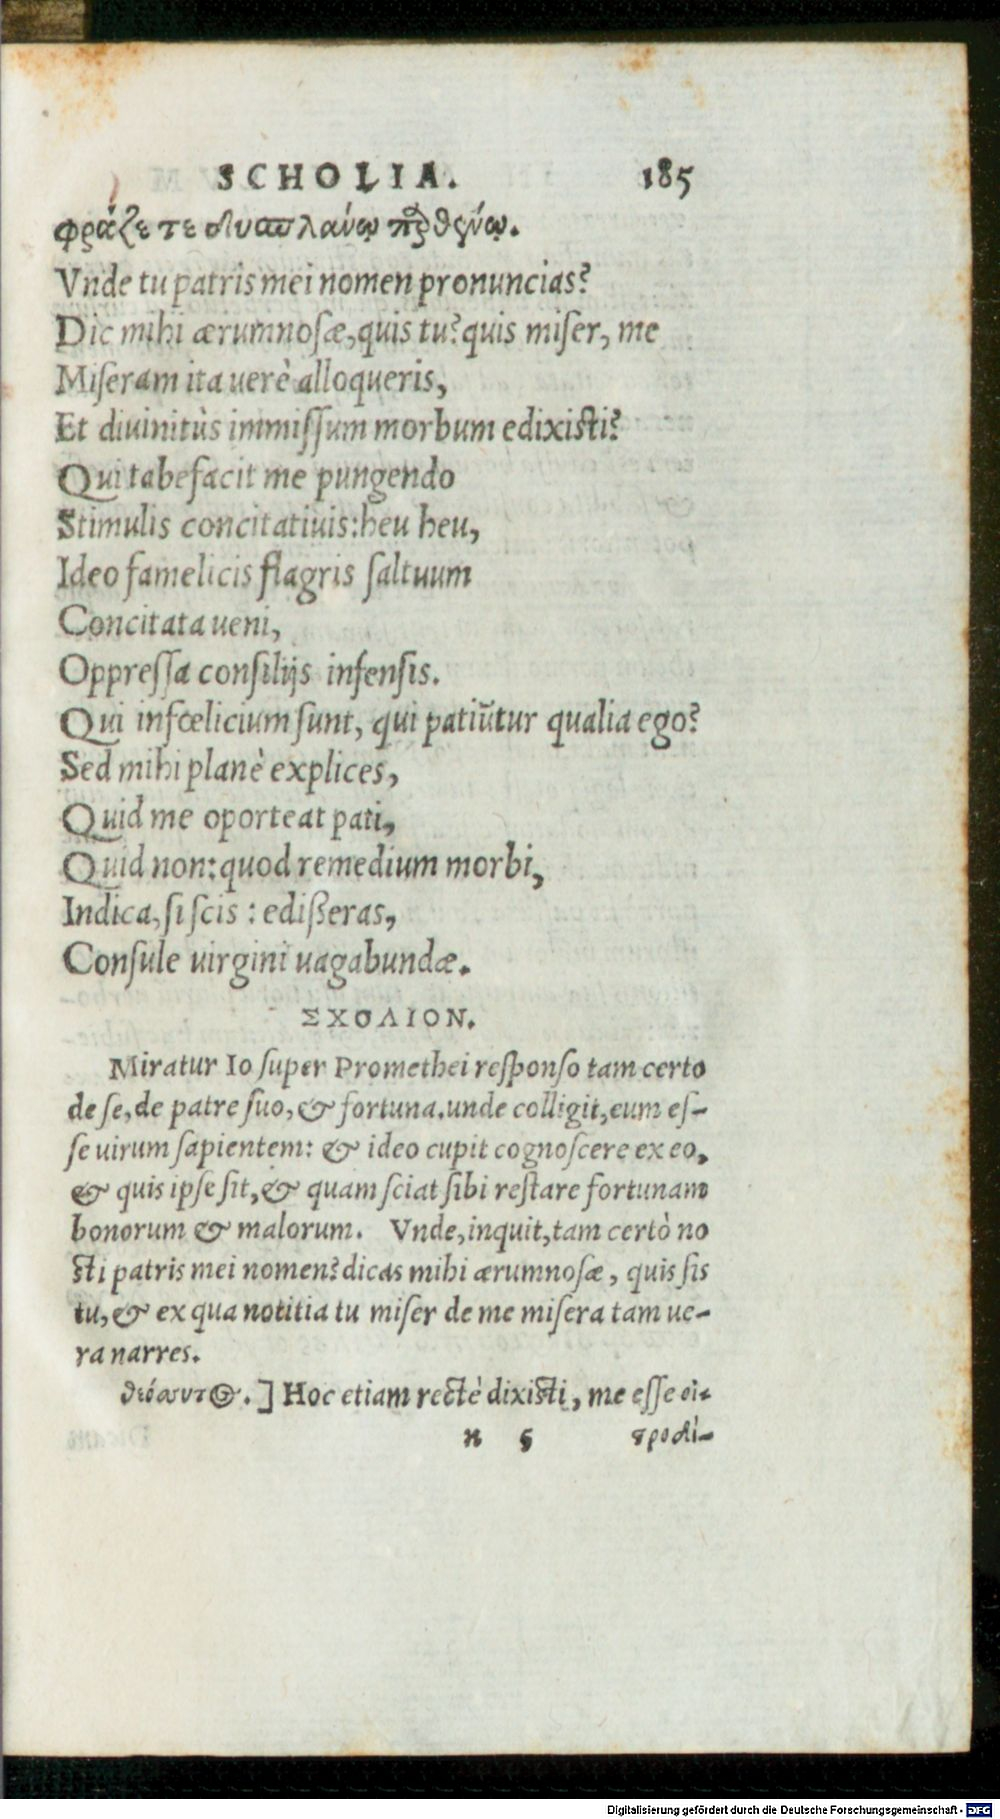 SCHOLIA. 185
φράζε τε δυσπλάνῳ παρθένῳ.
Vnde tu patris mei nomen pronuncias?
Dic mihi ærumnoſæ, quis tu? quis miſer, me
Miſeram ita uerè alloqueris,
Et diuinitùs immiſſum morbum edixiſti?
Qui tabefacit me pungendo
Stimulis concitatiuis: heu heu,
Ideo famelicis flagris ſaltuum
Concitata ueni,
Oppreſſa conſilijs infenſis.
Qui infœlicium ſunt, qui patiũtur qualia ego?
Sed mihi planè explices,
Quid me oporteat pati,
Quid non: quod remedium morbi,
Indica, ſi ſcis : edißeras,
Conſule uirgini uagabundæ.
ΣΧΟΛΙΟΝ.
Miratur Io ſuper Promethei reſponſo tam certo
de ſe, de patre ſuo, & fortuna. unde colligit, eum eſ-
ſe uirum ſapientem: & ideo cupit cognoſcere ex eo,
& quis ipſe ſit, & quam ſciat ſibi reſtare fortunam
bonorum & malorum. Vnde, inquit, tam certò no
ſti patris mei nomen? dicas mihi ærumnoſæ, quis ſis
tu, & ex qua notitia tu miſer de me miſera tam ue-
ra narres.
θεόσυτος.] Hoc etiam rectè dixiſti, me eſſe οἰ-
n 5 ςροδί-
Digitalisierung gefördert durch die Deutsche Forschungsgemeinschaft - DFG